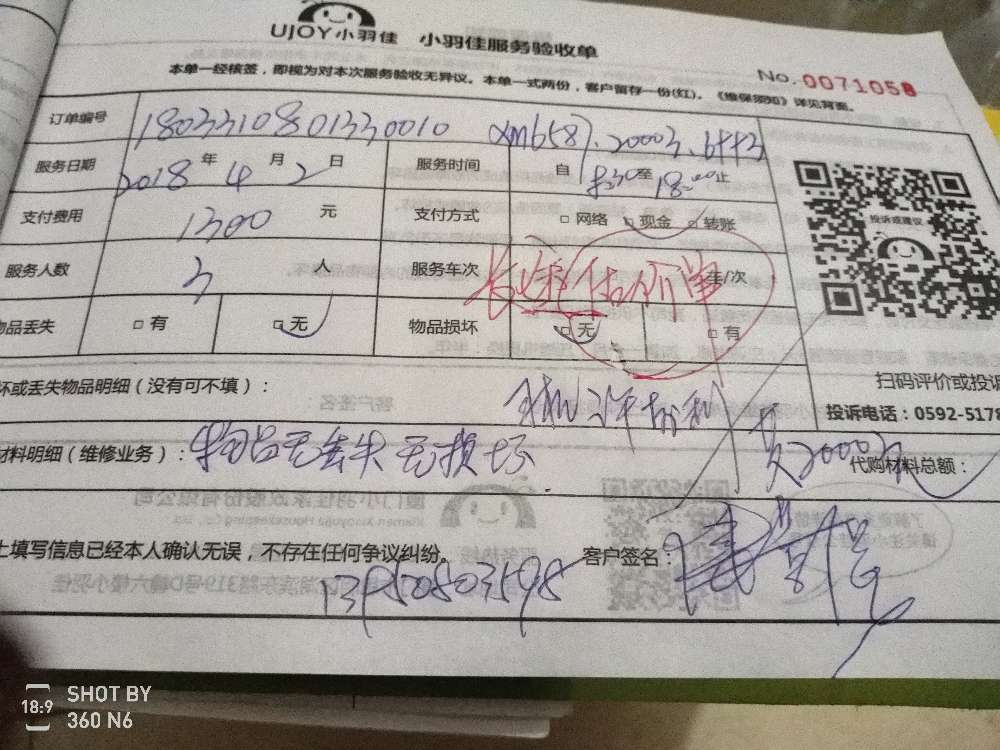 UJOY小羽佳 小羽佳服务验收单
No. 0071058
本单一经核签，即视为对本次服务验收无异议。本单一式两份，客户留存一份(红)。《维保须知》详见背面。
订单编号 1803310801330010
服务日期 2018 年 4 月 2 日 服务时间 自 8:30 至 18:00 止
支付费用 1300 元 支付方式 □ 网络 □ 现金 □ 转账
投诉或建议
服务人数 3 人 服务车次 车/次
物品丢失 □ 有 □ 无 物品损坏 □ 无 □ 有
坏或丢失物品明细（没有可不填）：
扫码评价或投诉
投诉电话：0592-5179
材料明细（维修业务）：物品无丢失无损坏
共2000元
代购材料总额：
上填写信息已经本人确认无误，不存在任何争议纠纷。 客户签名：
13950803598
18:9 SHOT BY
360 N6